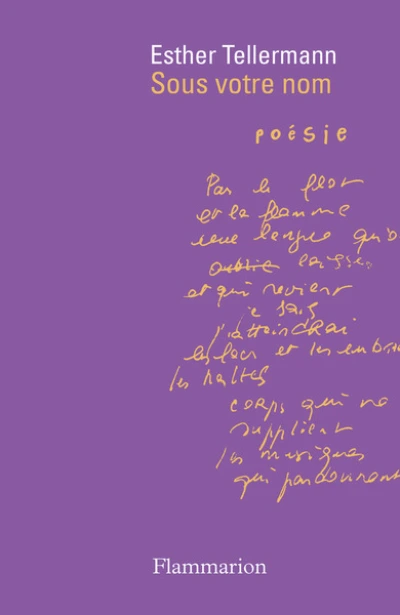 Esther Tellermann
Sous votre nom
poésie
Par le flot
et la flamme
une langue qu'o
oublie laissée
et qui revient
je sais
j'attoindrai
les lacs et les
les haltes
corps qui ne
supplient
les musiques
qui parcourent
Flammarion